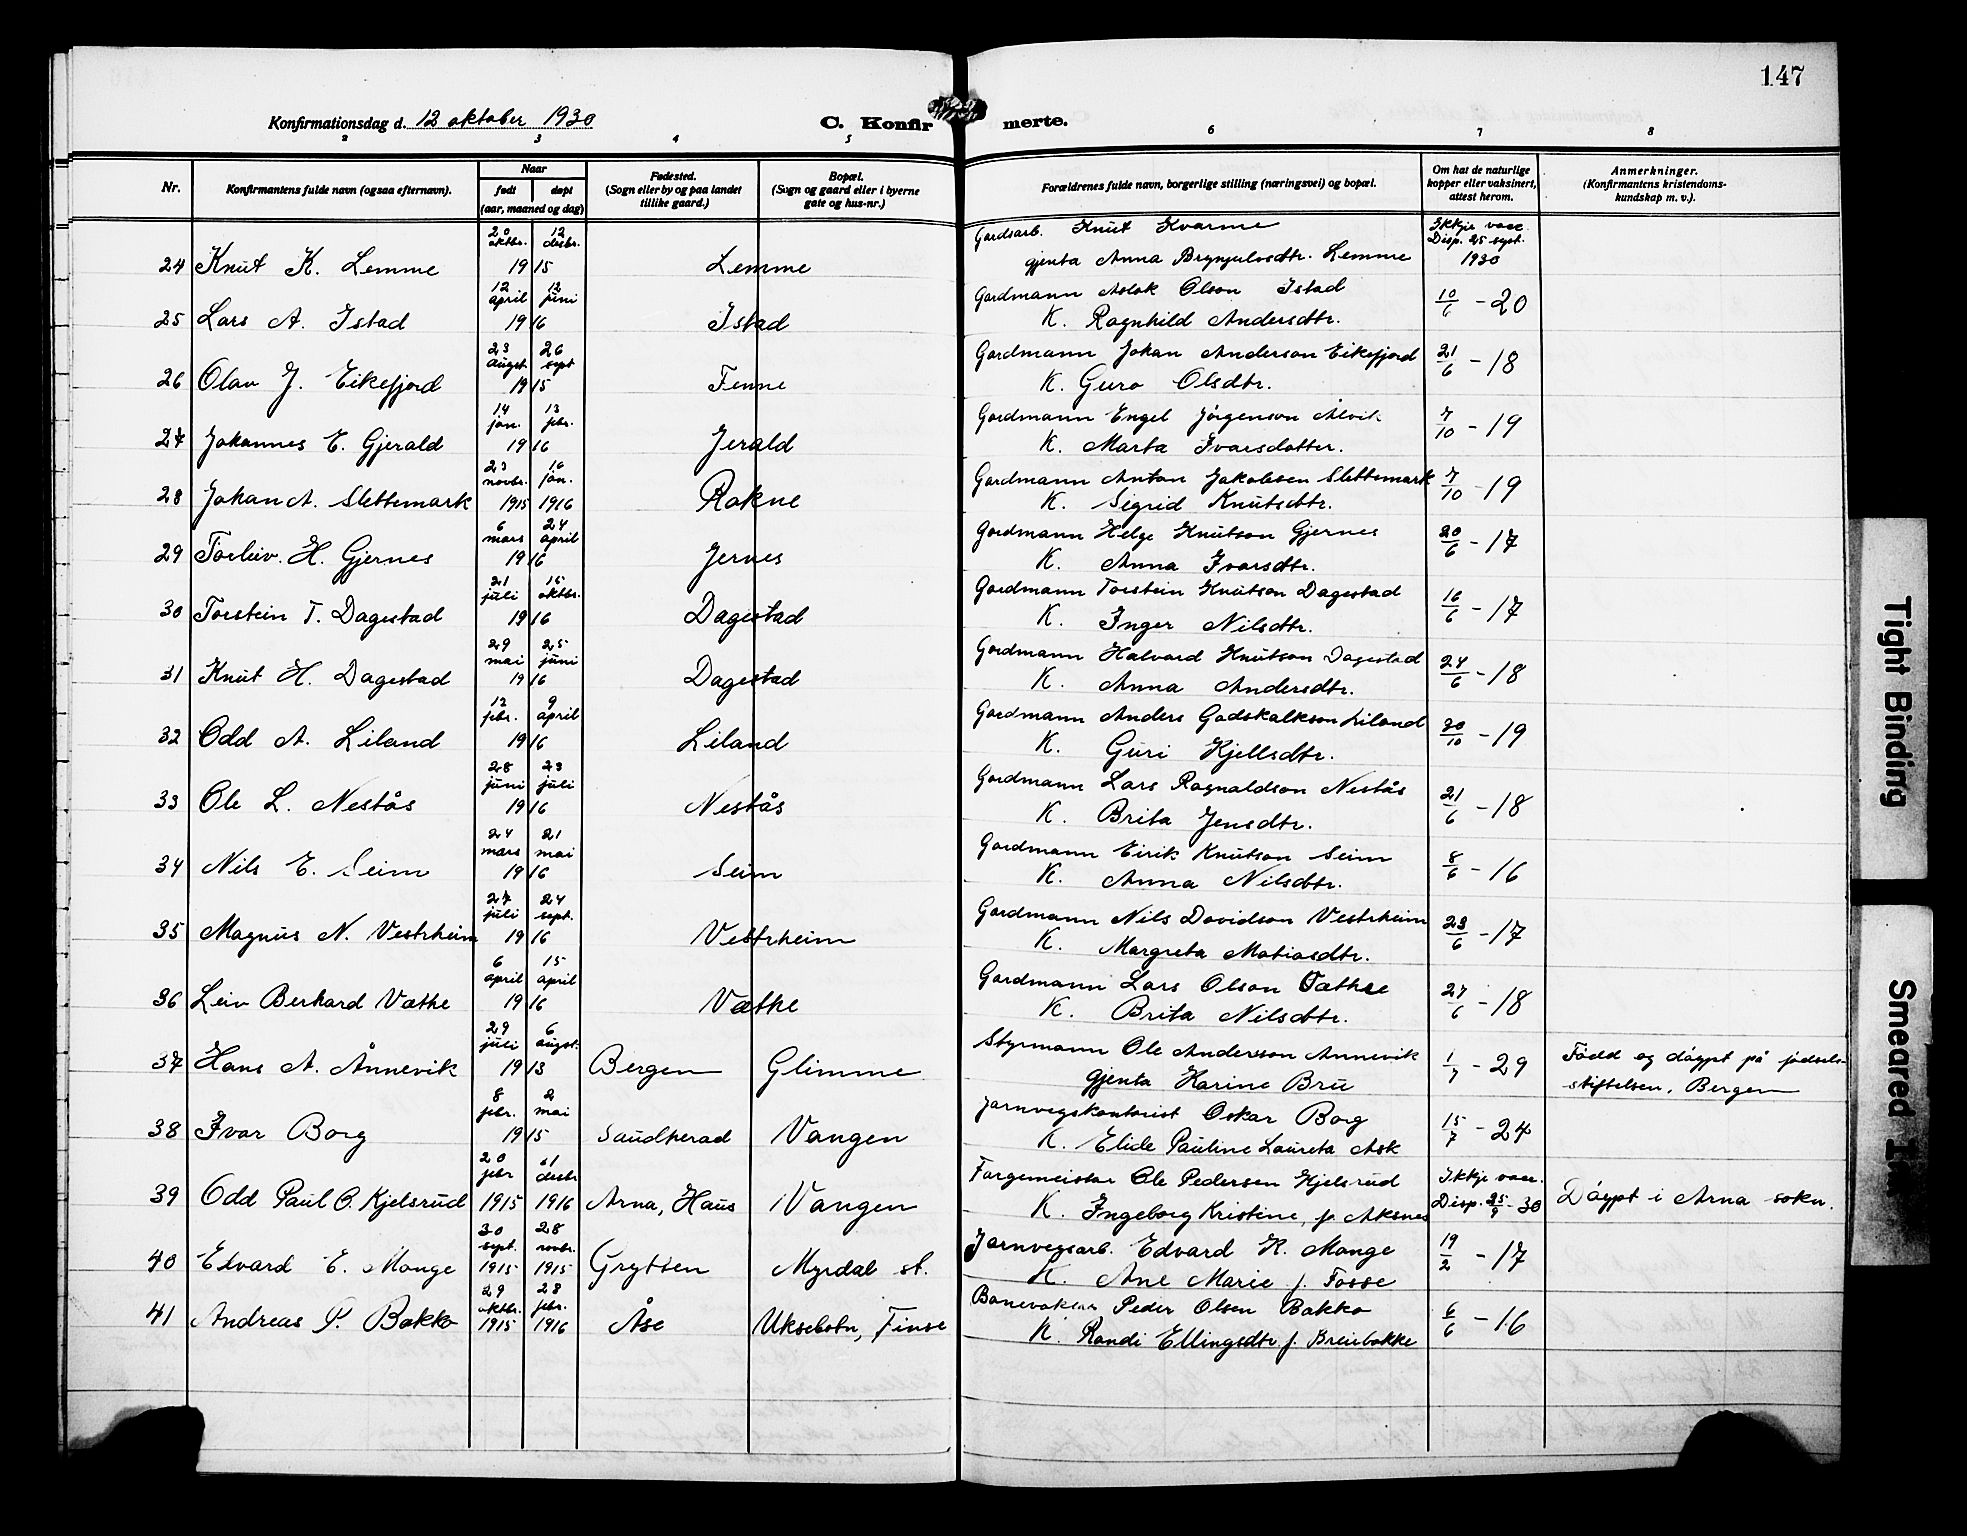 147
Konfirmationsdag d. 12 oktober 1930
C. Konfirmerte.
2 3 4 5 6 7 8
Nr. Konfirmantens fulde navn (ogsaa efternavn). Naar født døpt (aar, maaned og dag) Fødested. (Sogn eller by og paa landet tillike gaard.) Bopæl. (Sogn og gaard eller i byerne gate og hus-nr.) Forældrenes fulde navn, borgerlige stilling (næringsvei) og bopæl. Om har de naturlige kopper eller vaksinert, attest herom. Anmerkninger. (Konfirmantens kristendomskundskap m. v.).
24 Knut K. Lemme 20 oktbr. 12 desbr. 1915 Lemme Gardsarb. Knut Kvarme Ikkje vacc. Disp. 25 sept. 1930
gjenta Anna Brynjulvsdtr. Lemme
25 Lars A. Istad 12 april 12 juni 1916 Istad Gardmann Aslak Olson Istad 10/6 - 20
K. Ragnhild Andersdtr.
26 Olav J. Eikefjord 23 august 26 sept 1915 Fenne Gardmann Johan Anderson Eikefjord 21/6 - 18
K. Guro Olsdtr.
27 Johannes E. Gjerald 14 jan. 13 febr. 1916 Jerald Gardmann Engel Jørgenson Ålvik 7/10 - 19
K. Marta Ivarsdotter.
28 Johan A. Slettemark 23 novbr. 1915 16 jan. 1916 Rokne Gardmann Anton Jakobsen Slettemark 7/10 - 19
K. Sigrid Knutsdtr.
29 Torleiv. H. Gjernes 6 mars 24 april 1916 Jernes Gardmann Helge Knutson Gjernes 20/6 - 17
K. Anna Ivarsdtr.
30 Torstein T. Dagestad 21 juli 15 oktbr. 1916 Dagestad Gardmann Torstein Knutson Dagestad 16/6 - 17
K. Inger Nilsdtr.
31 Knut H. Dagestad 29 mai 25 juni 1916 Dagestad Gardmann Halvard Knutson Dagestad 24/6 - 18
K. Anna Andersdtr.
32 Odd A. Liland 12 febr. 9 april 1916 Liland Gardmann Anders Godskalkson Liland 20/10 - 19
K. Guri Kjellsdtr.
33 Ole L. Nestås 28 juni 23 juli 1916 Nestås Gardmann Lars Ragnaldson Nestås 21/6 - 18
K. Brita Jensdtr.
34 Nils E. Seim 24 mars 21 mai 1916 Seim Gardmann Eirik Knutson Seim 8/6 - 16
K. Anna Nilsdtr.
35 Magnus N. Vestrheim 27 juli 24 sept. 1916 Vestrheim Gardmann Nils Davidson Vestrheim 23/6 - 17
K. Margreta Matiasdtr.
36 Leiv Berhard Væthe 6 april 15 april 1916 Væthe Gardmann Lars Olson Væthe 27/6 - 18
K. Brita Nilsdtr.
37 Hans A. Ånnevik 29 juli 6 augst. 1913 Bergen Glimme Styrmann Ole Andersson Annevik 1/7 - 29 Fødd og døypt på fødsels-
gjenta Karine Bru stiftelsen, Bergen
38 Ivar Borg 8 febr. 2 mai 1915 Saudherad Vangen Jarnvegskontorist Oskar Borg 15/7 - 24
K. Elide Pauline Laureta Ask
39 Odd Paul O. Kjelsrud 20 febr 1915 desbr 1916 Arna, Haus Vangen Fargemeister Ole Pedersen Kjelsrud Ikkje vacc. Disp. 25/9 - 30 Døypt i Arna sokn.
K. Ingeborg Kristine, f. Aksnes
40 Edvard E. Monge 30 sept. 1915 28 novbr. 1915 Grytten Myrdal st. Jarnvegsarb. Edvard K. Monge 19/2 - 17
K. Ane Marie f. Fosse
41 Andreas P. Bakko 29 oktbr. 1915 28 febr. 1916 Åse Uksebotn, Finse Banevokter Peder Olsen Bakko 6/6 - 16
K. Randi Ellingsdtr. f. Breiebakke
Tight Binding
Smeared